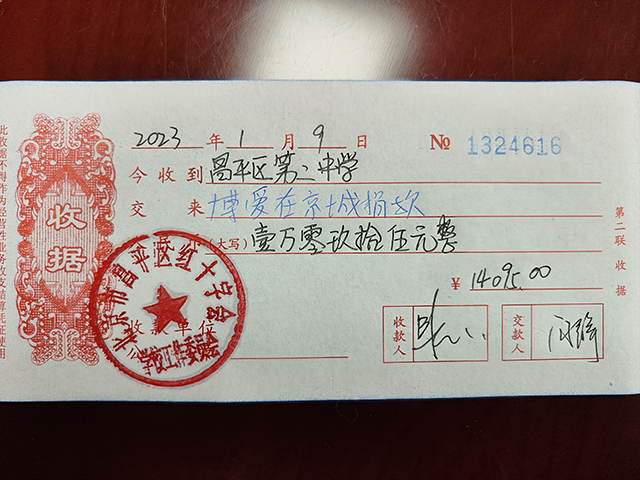 2023 年 1 月 9 日 № 1324616
今收到 昌平区第二中学
交来 博爱在京城捐款
(大写) 壹万零玖拾伍元整
¥ 14095.00
收款单位
公
收款人
交款人
收据
此收据不得作为经营性业务收支结算凭证使用
第二联 收据
北京市昌平区红十字会
学校工作委员会